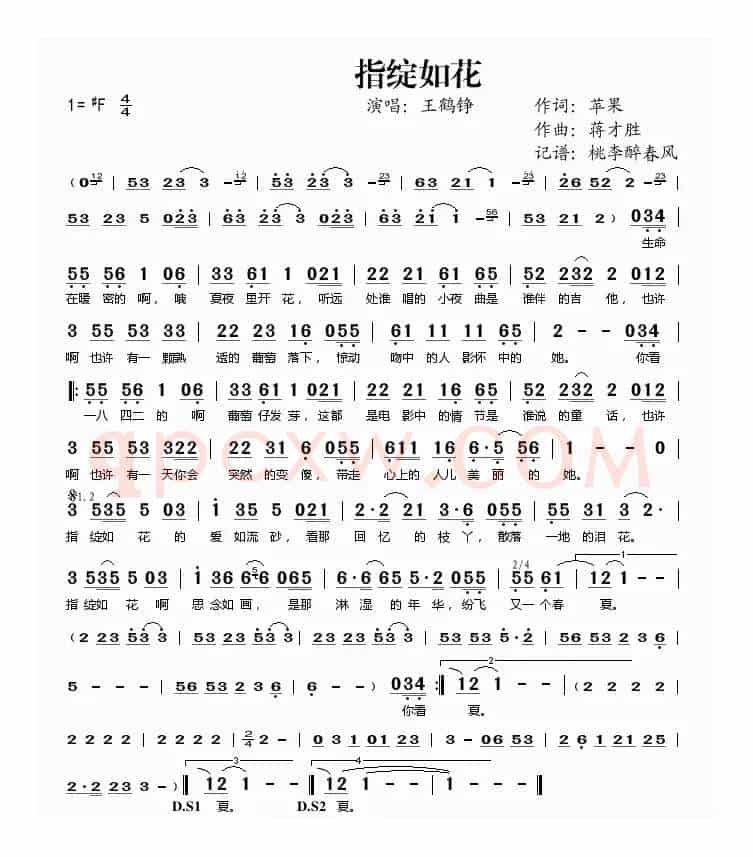 指绽如花
1=♯F 4/4 演唱：王鹤铮 作词：苹果
作曲：蒋才胜
记谱：桃李醉春风
（0 12 | 53 23 3 - 12 | 53 23 3 - 23 | 63 21 1 - 23 | 26 52 2 - 23 |
53 23 5 023 | 63 23 3 023 | 63 21 1 - 56 | 53 21 2 ） 034 |
生命
55 56 1 06 | 33 61 1 021 | 22 21 61 65 | 52 232 2 012 |
在暖 密的 啊，哦 夏夜 里开 花，听远 处谁 唱的 小夜 曲是 谁伴 的吉 他，也许
3 55 53 33 | 22 23 16 055 | 61 11 11 65 | 2 - - 034 |
啊 也许 有一 颗熟 透的 葡萄 落下，惊动 吻中 的人 影怀 中的 她。 你看
‖: 55 56 1 06 | 33 61 1 021 | 22 21 61 65 | 52 232 2 012 |
一八 四二 的 啊 葡萄 仔发 芽，这都 是电 影中 的情 节是 谁说 的童 话，也许
3 55 53 322 | 22 31 1 055 | 611 16 6·5 56 | 1 - - 0 |
啊 也许 有一 天你会 突然 的变 傻，带走 心上的 人儿 美 丽 的 她。
1.2
3 535 5 03 | 1 35 5 021 | 2·2 21 3·6 055 | 55 31 3 2· |
指 绽如 花 的 爱 如流 砂，看那 回 忆 的 枝 丫，散落 一地 的泪 花。
2/4 1
3 535 5 03 | 1 36 66 065 | 6·6 65 5·2 055 | 55 61 | 12 3 - - |
指 绽如 花 啊 思 念如 画，是那 淋 湿 的 年 华，纷飞 又一 个春 夏。
（2 23 53 3 | 53 23 23 3 | 53 53 53 5·2 | 56 53 23 6 |
2
5 - - - | 56 53 23 6 | 6 - - ） 034 :‖ 12 1 - - |（2 2 2 2 |
你看 夏。
2 2 2 2 | 2 2 2 2 | 2/4 2 - | 03 1 01 23 | 3 - 06 53 | 23 21 61 25 |
3 4
2·2 23 3 - ）‖ 12 1 - - ‖ 12 1 - - - ‖
D.S1 夏。 D.S2 夏。
qpcxw.com